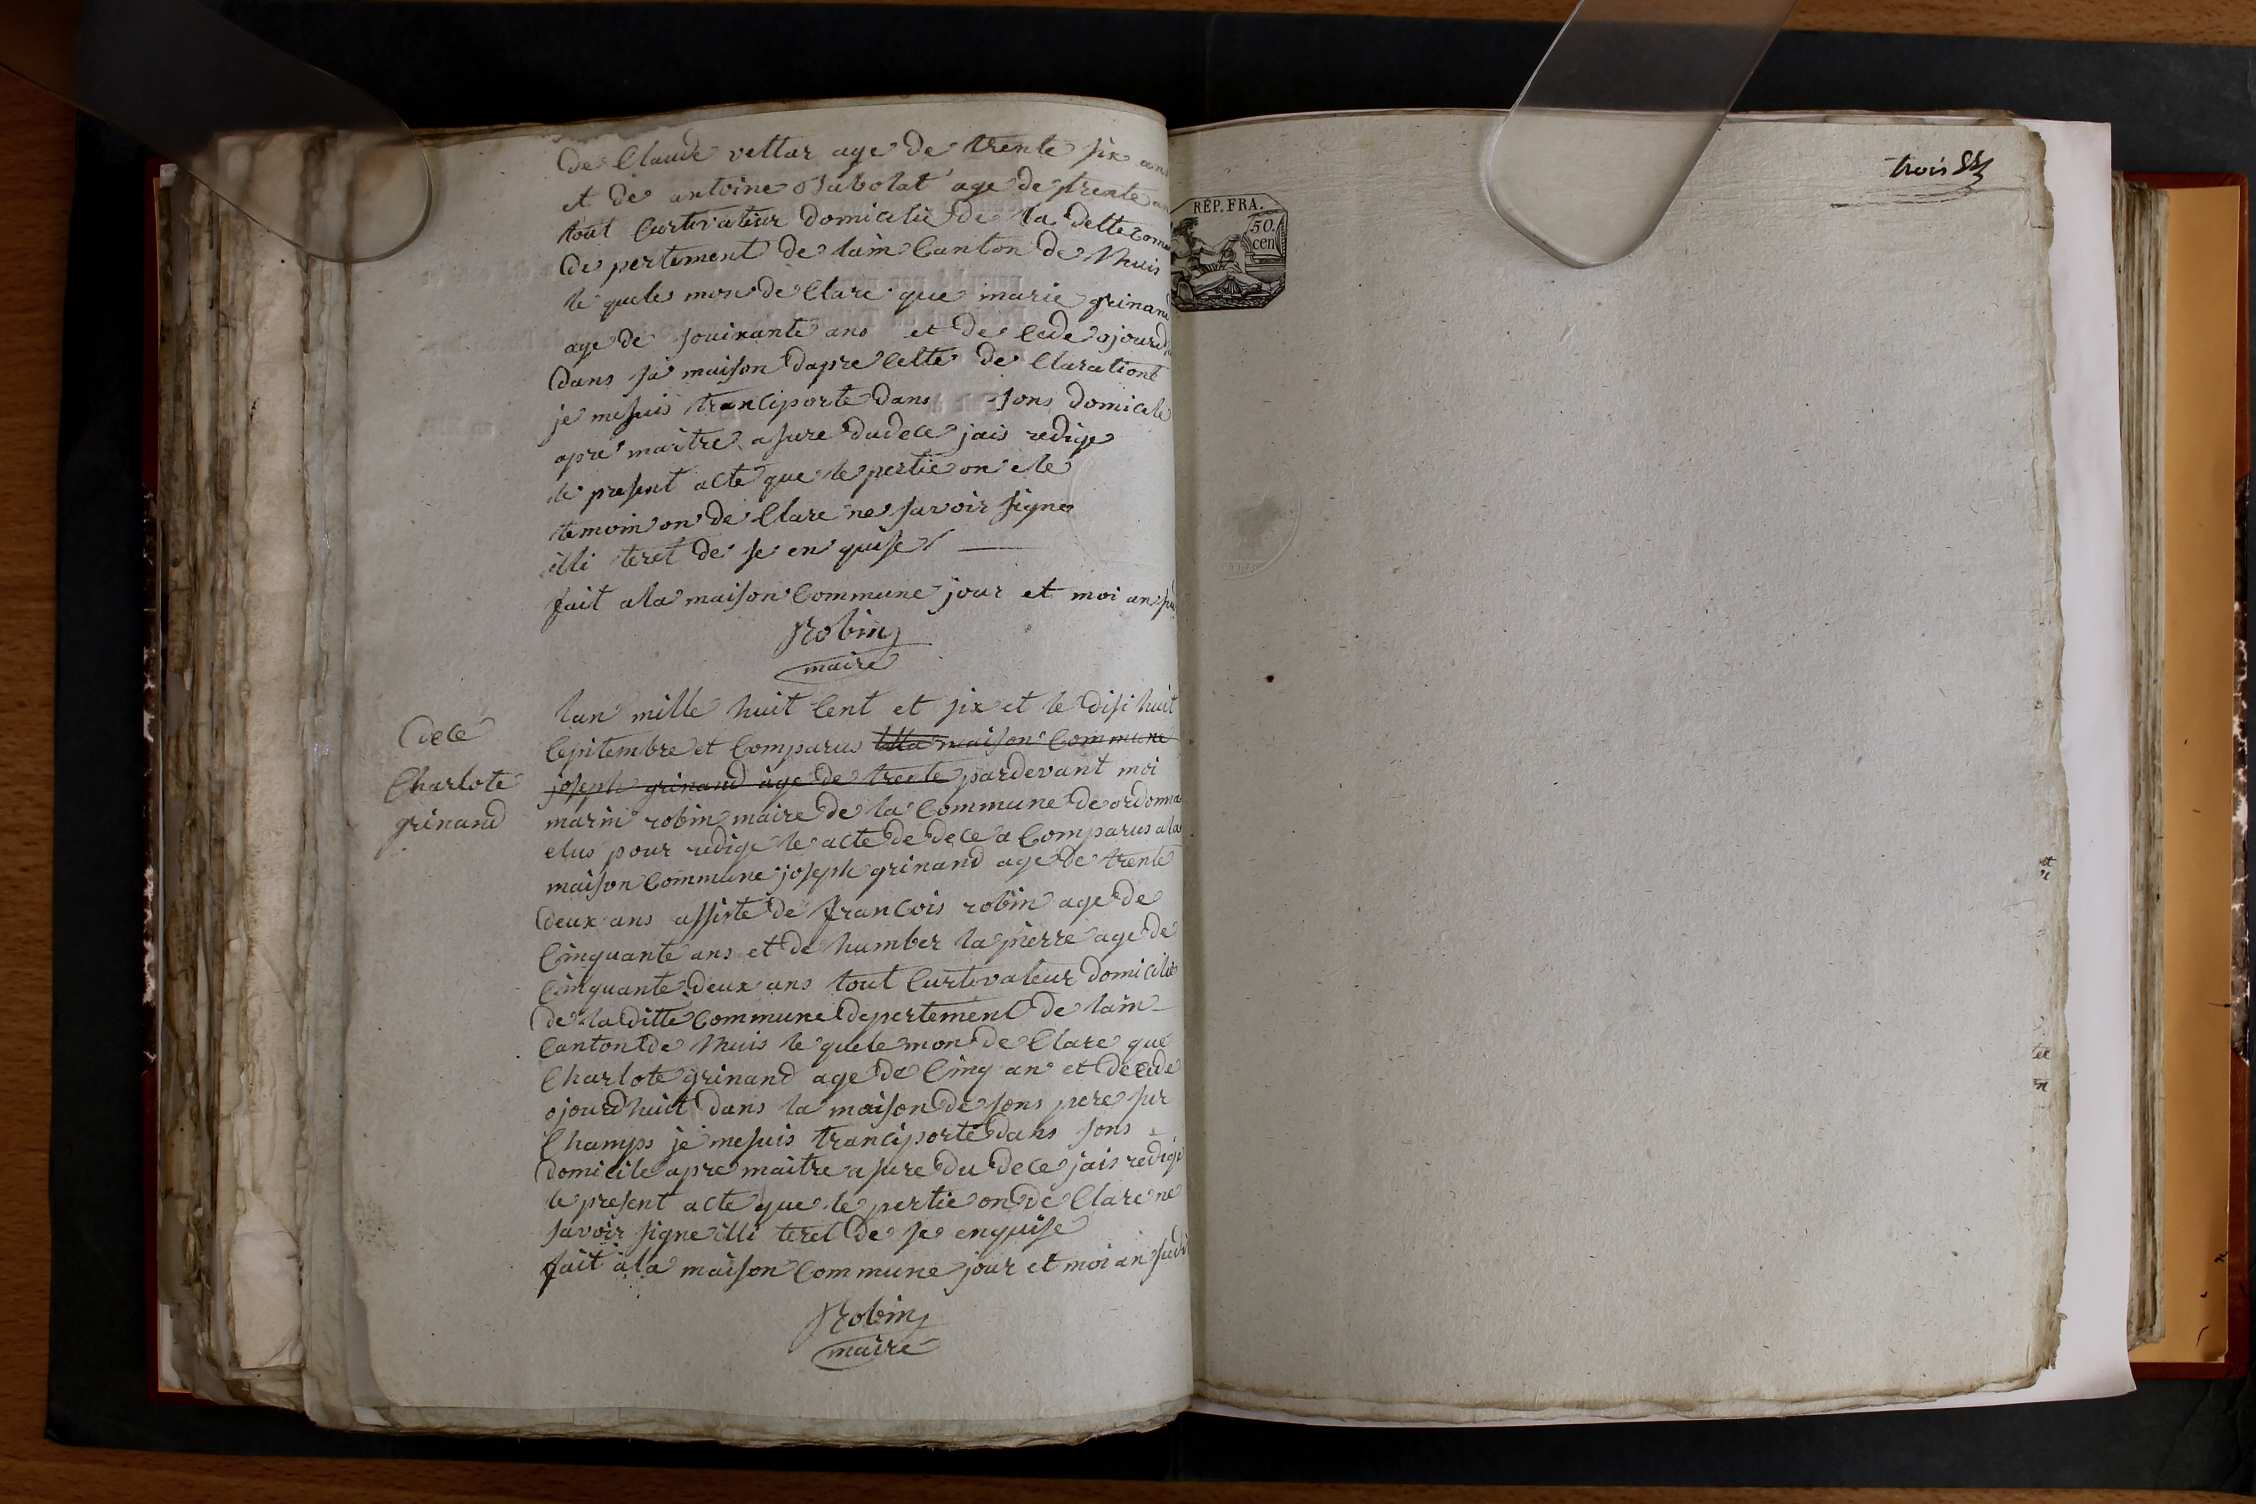 de Claude vettar age de trente six ans
et de antoine Sabolat age de trente an
tout Curtivateur domicilié de la ditte Comu
de pertement de lain Canton de lhuis
le quele mon de Clare que marie grinand
age de souixante ans et de cede ojourd
dans sa maison dapre cette de Clarationt
je me suis tranciporte dans sons domicile
apre maitre asure dudece jais redige
le present acte que le pertie on ele
temoin on de Clare ne savoir signe
illi teret de se en quise
fait ala maison Commune jour et moi an su
Robin
maire
Dece
Charlote
grinand
lan mille huit Cent et six et le disi huit
Cepitembre et Comparus alla maison Commune
joseph grinand age de trente pardevant moi
marin robin maire de la Commune de ordonna
elus pour redige le acte de dece a Comparus ala
maison Commune joseph grinand age de trente
deux ans assiste de francois robin age de
Cinquante ans et de humber la pierre age de
Cinquante deux ans tout Curtivateur domicilié
de la ditte Commune depertement de lain
Canton de lhuis le quele mon de Clare que
Charlote grinand age de Cinq an et decede
ojourdhuit dans la maison de sons pere sur
Champs je me suis tranciporte dans sons
domicile apre maitre asure du dece jais redige
le present acte que le pertie on de Clare ne
savoir signe illi teret de se enquise
fait à la maison Commune jour et moi an sudi
Robin
maire
trois
RÉP. FRA.
50.
cen